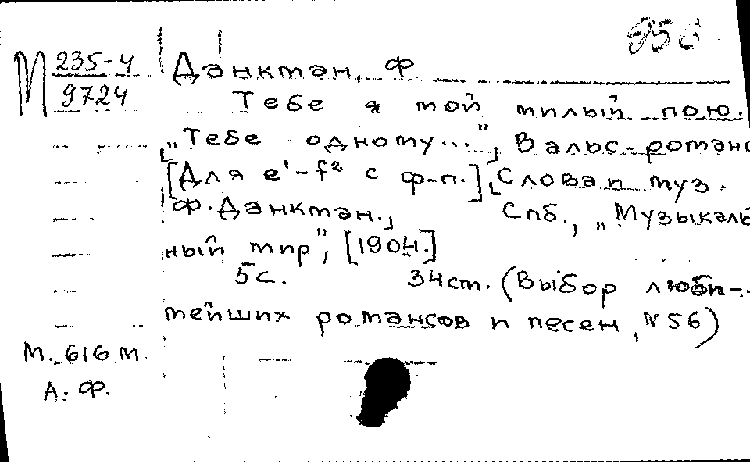 950
М 235-4
9724
Данкман, Ф
Тебе я мой милый пою.
„Тебе одному...", Вальс-романс
[Для e¹-f² с ф-п.] Слова и муз.
Ф. Данкман., Спб., „Музыкаль
ный мир", [1904.]
5 с. 34 cm. (Выбор люби-
мейших романсов и песен, N 56)
М. 616 м.
А. Ф.